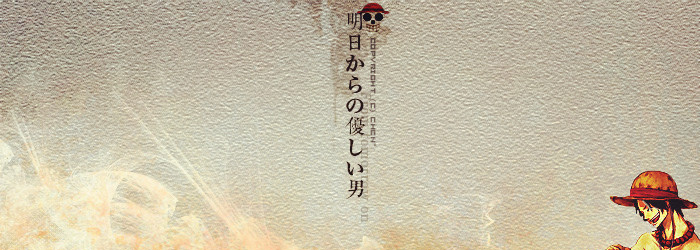 明日からの優しい男
COPYRIGHT (C) CHEN.